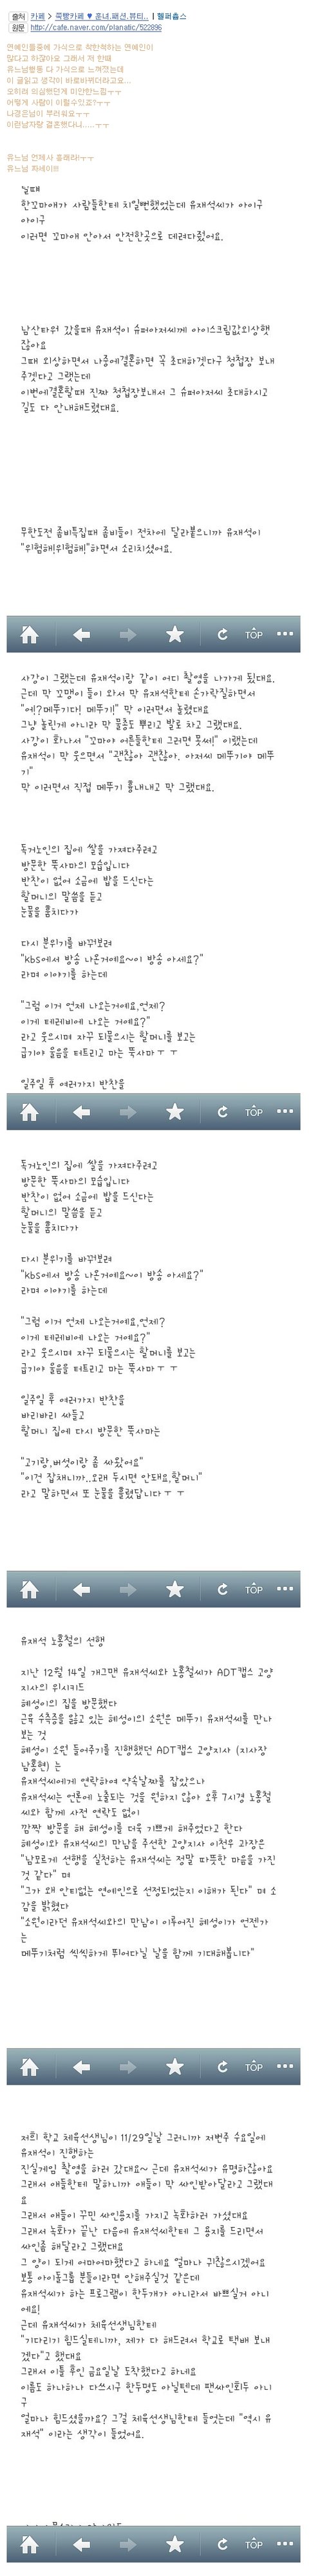 출처 카페 > 쭉빵카페 ♥ 훈녀.패션.뷰티.. | 헬퍼홉스
원문 http://cafe.naver.com/planatic/522896
연예인들중에 가식으로 착한척하는 연예인이
많다고 하잖아요 그래서 저 한때
유느님행동 다 가식으로 느껴졌는데
이 글읽고 생각이 바로바뀌더라고요...
오히려 의심했던게 미안한느낌ㅜㅜ
어떻게 사람이 이럴수있죠?ㅜㅜ
나경은님이 부러워요ㅜㅜ
이런남자랑 결혼했다니.....ㅜㅜ
유느님 언제나 흥해라!ㅜㅜ
유느님 차세이!!!
닐때
한꼬마애가 사람들한테 치일뻔했었는데 유재석씨가 아이구
아이구
이러면 꼬마애 안아서 안전한곳으로 데려다줬어요.
남산타워 갔을때 유재석이 슈퍼아저씨께 아이스크림값외상했
잖아요
그때 외상하면서 나중에결혼하면 꼭 초대하겠다구 청첩장 보내
주겠다고 그랬는데
이번에결혼할때 진짜 청첩장보내서 그 슈퍼아저씨 초대하시고
길도 다 안내해드렸대요.
무한도전 좀비특집때 좀비들이 전차에 달라붙으니까 유재석이
"위험해!위험해!"하면서 소리치셨어요.
TOP
사강이 그랬는데 유재석이랑 같이 어디 촬영을 나가게 됐대요.
근데 막 꼬맹이 들이 와서 막 유재석한테 손가락질하면서
"어!?메뚜기다! 메뚜기!" 막 이러면서 놀렸대요
그냥 놀린게 아니라 막 물총도 뿌리고 발로 차고 그랬대요.
사강이 화나서 "꼬마야 어른들한테 그러면 못써!" 이랬는데
유재석이 막 웃으면서 "괜찮아 괜찮아. 아저씨 메뚜기야 메뚜
기"
막 이러면서 직접 메뚜기 흉내내고 막 그랬대요.
독거노인의 집에 쌀을 가져다주려고
방문한 뚝사마의 모습입니다
반찬이 없어 소금에 밥을 드신다는
할머니의 말씀을 듣고
눈물을 훔치다가
다시 분위기를 바꿔보려
"kbs에서 방송 나온거예요~이 방송 아세요?"
라며 이야기를 하는데
"그럼 이거 언제 나오는거예요,언제?
이게 테레비에 나오는 거예요?"
라고 웃으시며 자꾸 되물으시는 할머니를 보고는
급기야 울음을 터트리고 마는 뚝사마ㅜ ㅜ
일주일 후 여러가지 반찬을
TOP
독거노인의 집에 쌀을 가져다주려고
방문한 뚝사마의 모습입니다
반찬이 없어 소금에 밥을 드신다는
할머니의 말씀을 듣고
눈물을 훔치다가
다시 분위기를 바꿔보려
"kbs에서 방송 나온거예요~이 방송 아세요?"
라며 이야기를 하는데
"그럼 이거 언제 나오는거예요,언제?
이게 테레비에 나오는 거예요?"
라고 웃으시며 자꾸 되물으시는 할머니를 보고는
급기야 울음을 터트리고 마는 뚝사마ㅜ ㅜ
일주일 후 여러가지 반찬을
바리바리 싸들고
할머니 집에 다시 방문한 뚝사마는
"고기랑,버섯이랑 좀 싸왔어요"
"이건 잡채니까..오래 두시면 안돼요,할머니"
라고 말하면서 또 눈물을 흘렸답니다ㅜ ㅜ
TOP
유재석 노홍철의 선행
지난 12월 14일 개그맨 유재석씨와 노홍철씨가 ADT캡스 고양
지사의 위시키드
혜성이의 집을 방문했다
근육 수축증을 앓고 있는 혜성이의 소원은 메뚜기 유재석씨를 만나
보는 것
혜성이 소원 들어주기를 진행했던 ADT캡스 고양지사 (지사장
남홍현) 는
유재석씨에게 연락하여 약속날짜를 잡았으나
유재석씨는 언론에 노출되는 것을 원하지 않아 오후 7시경 노홍철
씨와 함께 사전 연락도 없이
깜짝 방문을 해 혜성이를 더욱 기쁘게 해주었다고 한다
혜성이와 유재석씨의 만남을 주선한 고양지사 이천우 과장은
"남모르게 선행을 실천하는 유재석씨는 정말 따뜻한 마음을 가진
것 같다" 며
"그가 왜 안티없는 연예인으로 선정되었는지 이해가 된다" 며 소
감을 밝혔다
"소원이라던 유재석씨와의 만남이 이루어진 혜성이가 언젠가
는
메뚜기처럼 씩씩하게 뛰어다닐 날을 함께 기대해봅니다"
TOP
저희 학교 체육선생님이 11/29일날 그러니까 저번주 수요일에
유재석이 진행하는
진실게임 촬영을 하러 갔대요~ 근데 유재석씨가 유명하잖아요
그래서 애들한테 말하니까 애들이 막 싸인받아달라고 그랬대
요
그래서 애들이 꾸민 싸인용지를 가지고 녹화하러 가셨대요
그래서 녹화가 끝난 다음에 유재석씨한테 그 용지를 드리면서
싸인좀 해달라고 그랬대요
그 양이 되게 어마어마했다고 하네요 얼마나 귀찮으시겠어요
보통 아이돌그룹 분들이라면 안해주실것 같은데
유재석씨가 하는 프로그램이 한두개가 아니라서 바쁘실거 아니
에요!
근데 유재석씨가 체육선생님한테
"기다리기 힘드실테니까, 제가 다 해드려서 학교로 택배 보내
겠다"고 했대요
그래서 이틀 후인 금요일날 도착했다고 하네요
이름도 하나하나 다쓰시구 한두명도 아닐텐데 팬싸인회두 아니
구
얼마나 힘드셨을까요? 그걸 체육선생님한테 들었는데 "역시 유
재석" 이라는 생각이 들었어요.
TOP